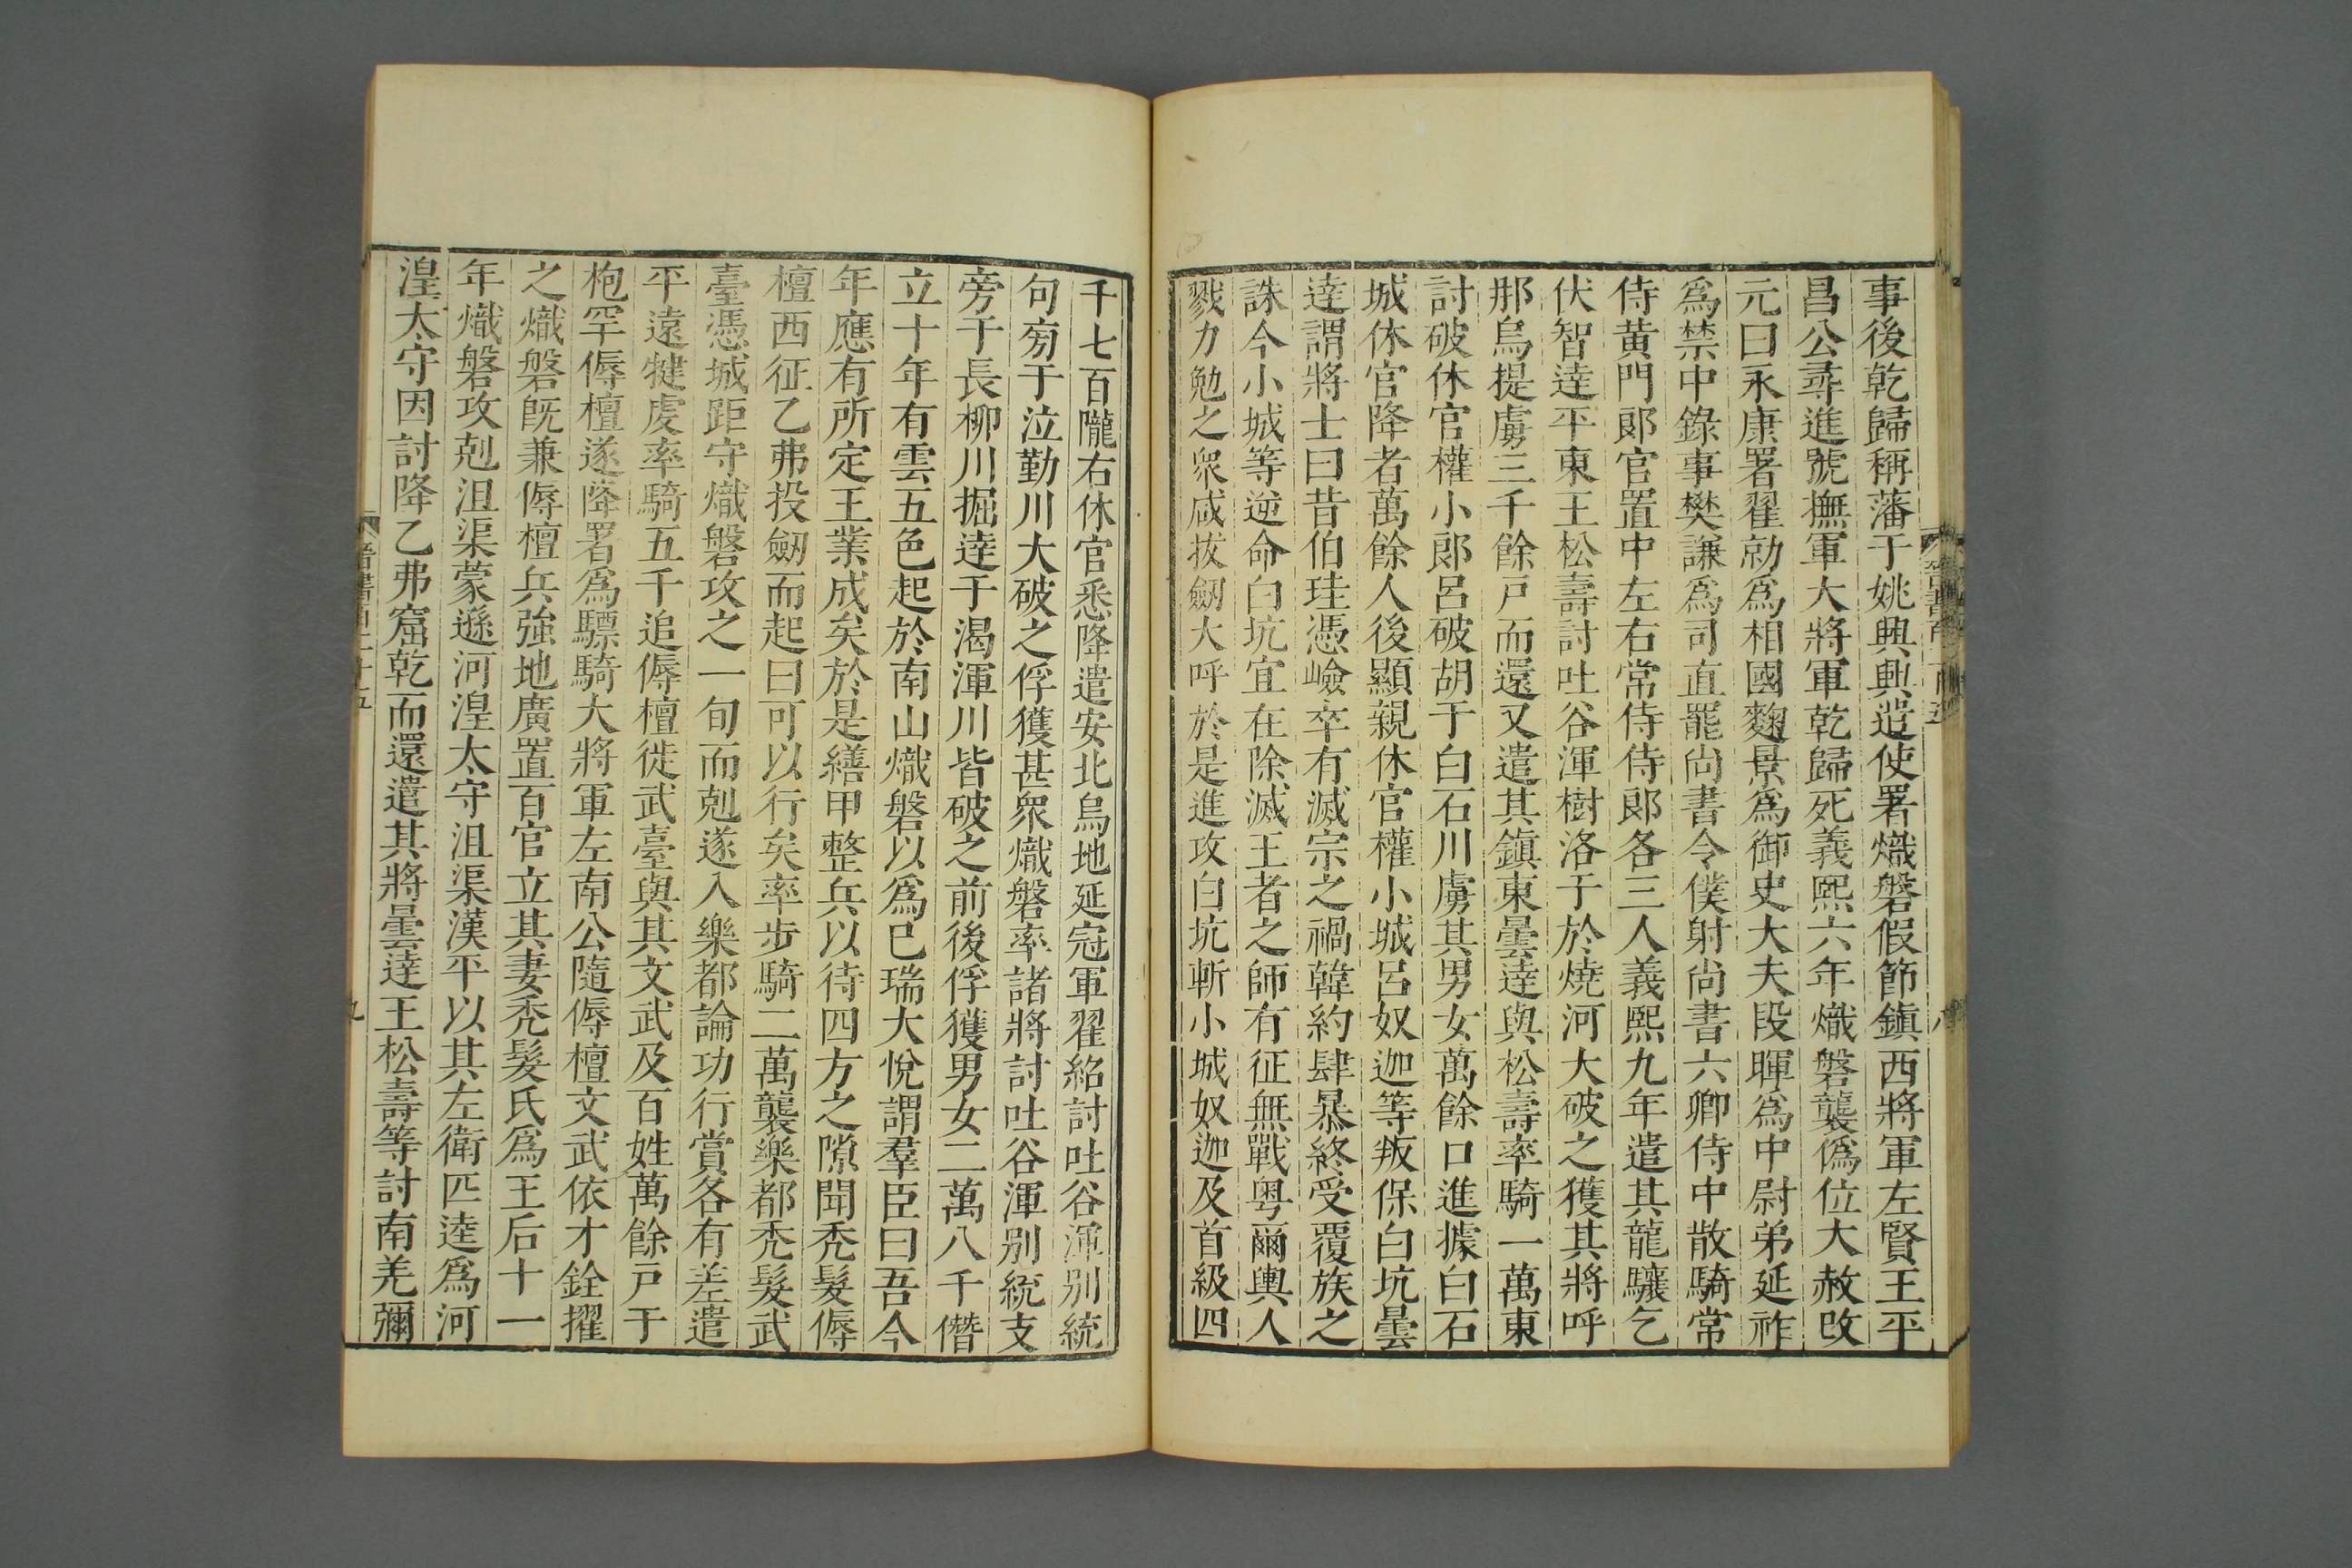 事後乾歸稱藩于姚興興遣使署熾磐假節鎮西將軍左賢王平
昌公尋進號撫軍大將軍乾歸死義熙六年熾磐襲僞位大赦改
元曰永康署翟勍爲相國麴景爲御史大夫段暉爲中尉弟延祚
爲禁中錄事樊謙爲司直罷尚書令僕射尚書六卿侍中散騎常
侍黃門郎官置中左右常侍侍郎各三人義熙九年遣其龍驤乞
伏智達平東王松壽討吐谷渾樹洛干於澆河大破之獲其將呼
那烏提虜三千餘戶而還又遣其鎮東曇達與松壽率騎一萬東
討破休官權小郎呂破胡于白石川虜其男女萬餘口進據白石
城休官降者萬餘人後顯親休官權小城呂奴迦等叛保白坑曇
達謂將士曰昔伯珪憑嶮卒有滅宗之禍韓約肆暴終受覆族之
誅今小城等逆命白坑宜在除滅王者之師有征無戰粵爾輿人
戮力勉之衆咸拔劒大呼於是進攻白坑斬小城奴迦及首級四
千七百隴右休官悉降遣安北烏地延冠軍翟紹討吐谷渾別統
句旁于泣勤川大破之俘獲甚衆熾磐率諸將討吐谷渾別統支
旁于長柳川掘達于渴渾川皆破之前後俘獲男女二萬八千僭
立十年有雲五色起於南山熾磐以爲已瑞大悅謂羣臣曰吾今
年應有所定王業成矣於是繕甲整兵以待四方之隙聞禿髮傉
檀西征乙弗投劒而起曰可以行矣率步騎二萬襲樂都禿髮武
臺憑城距守熾磐攻之一旬而剋遂入樂都論功行賞各有差遣
平遠犍虔率騎五千追傉檀徙武臺與其文武及百姓萬餘戶于
枹罕傉檀遂降署爲驃騎大將軍左南公隨傉檀文武依才銓擢
之熾磐旣兼傉檀兵強地廣置百官立其妻禿髮氏爲王后十一
年熾磐攻剋沮渠蒙遜河湟太守沮渠漢平以其左衛匹逵爲河
湟太守因討降乙弗窟乾而還遣其將曇達王松壽等討南羌彌